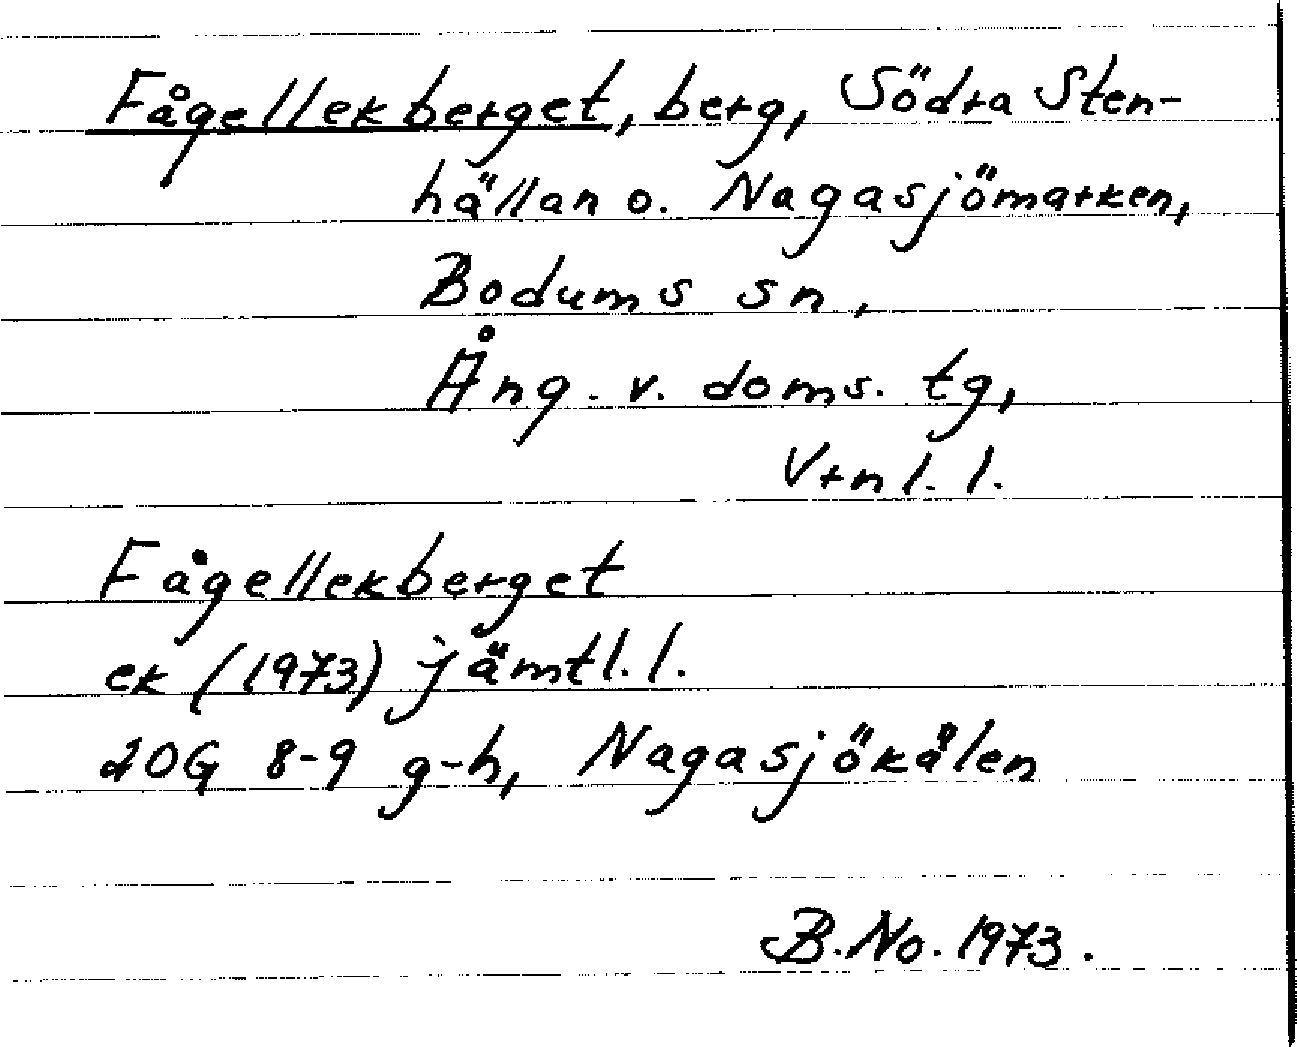 Fågellekberget, berg, Södra Sten-
hällan o. Nagasjömarken,
Bodums sn,
Ång. v. doms. tg,
Vrnl. l.
Fågellekberget
ek (1973) jämtl. l.
20G 8-9 g-h, Nagasjökålen
B. No. 1973.